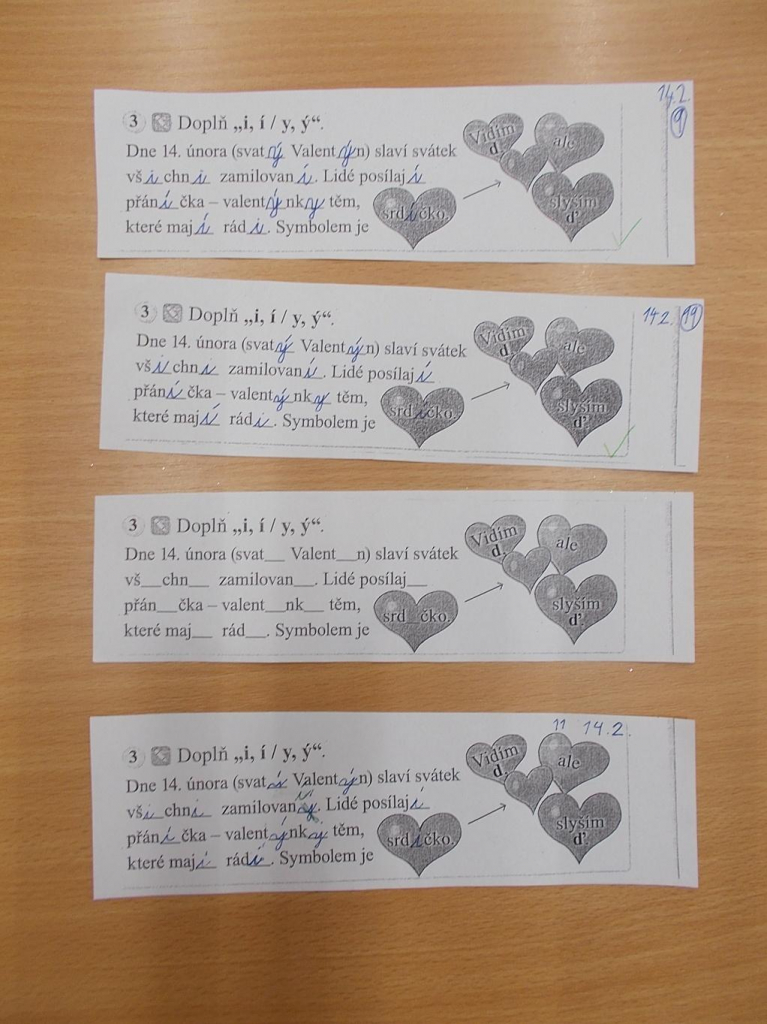 14.2.
9
3 Doplň „i, í / y, ý“.
Dne 14. února (svatý Valentýn) slaví svátek
všichni zamilovaní. Lidé posílají
přáníčka – valentýnky těm,
které mají rádi. Symbolem je
srdíčko.
Vidím
d,
ale
slyším
ď.
14.2. 19
3 Doplň „i, í / y, ý“.
Dne 14. února (svatý Valentýn) slaví svátek
všichni zamilovaní. Lidé posílají
přáníčka – valentýnky těm,
které mají rádi. Symbolem je
srdíčko.
Vidím
d,
ale
slyším
ď.
3 Doplň „i, í / y, ý“.
Dne 14. února (svat__ Valent__n) slaví svátek
vš__chn__ zamilovan__. Lidé posílaj__
přán__čka – valent__nk__ těm,
které maj__ rád__. Symbolem je
srd__čko.
Vidím
d,
ale
slyším
ď.
11 14.2.
3 Doplň „i, í / y, ý“.
Dne 14. února (svat Valentýn) slaví svátek
všichni zamilovan. Lidé posílají
přáníčka – valentýnky těm,
které mají rádi. Symbolem je
srdíčko.
Vidím
d,
ale
slyším
ď.